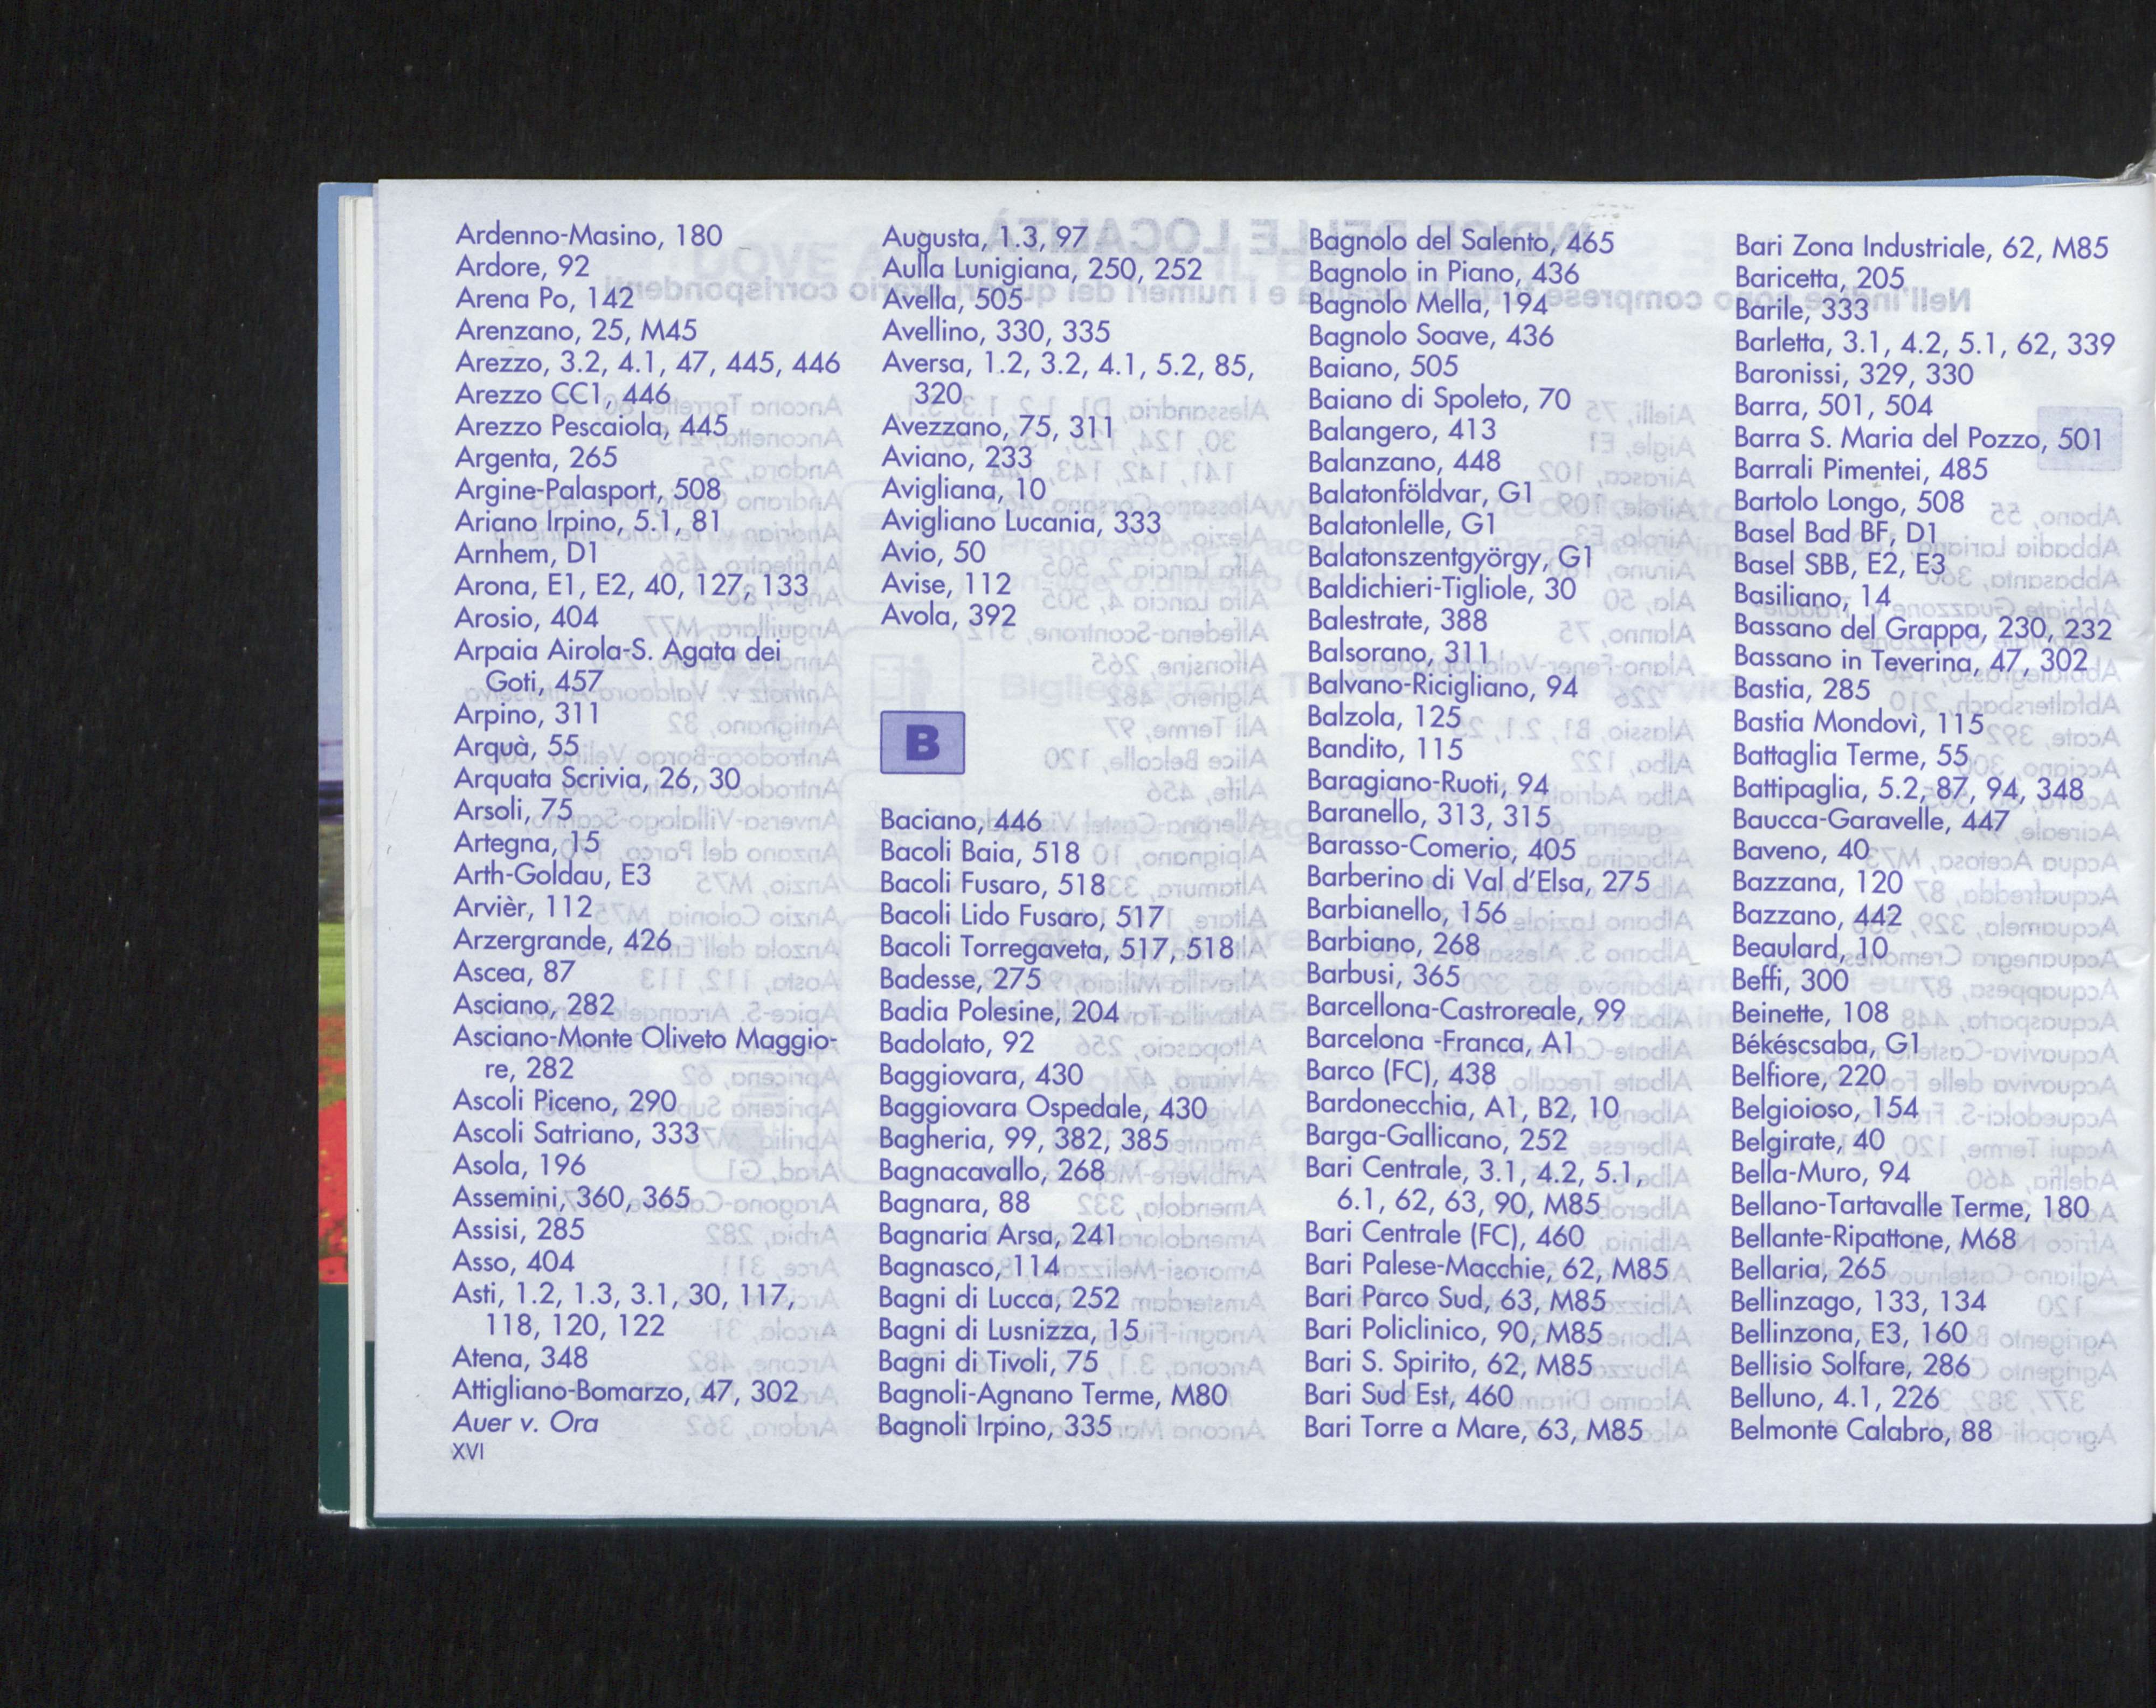 Ardenno-Masino, 180
Ardore, 92
Arena Po, 142
Arenzano, 25, M45
Arezzo, 3.2, 4.1, 47, 445, 446
Arezzo CC1, 446
Arezzo Pescaiola, 445
Argenta, 265
Argine-Palasport, 508
Ariano Irpino, 5.1, 81
Arnhem, D1
Arona, E1, E2, 40, 127, 133
Arosio, 404
Arpaia Airola-S. Agata dei
Goti, 457
Arpino, 311
Arquà, 55
Arquata Scrivia, 26, 30
Arsoli, 75
Artegna, 15
Arth-Goldau, E3
Arvièr, 112
Arzergrande, 426
Ascea, 87
Asciano, 282
Asciano-Monte Oliveto Maggio-
re, 282
Ascoli Piceno, 290
Ascoli Satriano, 333
Asola, 196
Assemini, 360, 365
Assisi, 285
Asso, 404
Asti, 1.2, 1.3, 3.1, 30, 117,
118, 120, 122
Atena, 348
Attigliano-Bomarzo, 47, 302
Auer v. Ora
XVI
Augusta, 1.3, 97
Aulla Lunigiana, 250, 252
Avella, 505
Avellino, 330, 335
Aversa, 1.2, 3.2, 4.1, 5.2, 85,
320
Avezzano, 75, 311
Aviano, 233
Avigliana, 10
Avigliano Lucania, 333
Avio, 50
Avise, 112
Avola, 392
B
Baciano, 446
Bacoli Baia, 518
Bacoli Fusaro, 518
Bacoli Lido Fusaro, 517
Bacoli Torregaveta, 517, 518
Badesse, 275
Badia Polesine, 204
Badolato, 92
Baggiovara, 430
Baggiovara Ospedale, 430
Bagheria, 99, 382, 385
Bagnacavallo, 268
Bagnara, 88
Bagnaria Arsa, 241
Bagnasco, 114
Bagni di Lucca, 252
Bagni di Lusnizza, 15
Bagni di Tivoli, 75
Bagnoli-Agnano Terme, M80
Bagnoli Irpino, 335
Bagnolo del Salento, 465
Bagnolo in Piano, 436
Bagnolo Mella, 194
Bagnolo Soave, 436
Baiano, 505
Baiano di Spoleto, 70
Balangero, 413
Balanzano, 448
Balatonföldvar, G1
Balatonlelle, G1
Balatonszentgyörgy, G1
Baldichieri-Tigliole, 30
Balestrate, 388
Balsorano, 311
Balvano-Ricigliano, 94
Balzola, 125
Bandito, 115
Baragiano-Ruoti, 94
Baranello, 313, 315
Barasso-Comerio, 405
Barberino di Val d'Elsa, 275
Barbianello, 156
Barbiano, 268
Barbusi, 365
Barcellona-Castroreale, 99
Barcelona -Franca, A1
Barco (FC), 438
Bardonecchia, A1, B2, 10
Barga-Gallicano, 252
Bari Centrale, 3.1, 4.2, 5.1,
6.1, 62, 63, 90, M85
Bari Centrale (FC), 460
Bari Palese-Macchie, 62, M85
Bari Parco Sud, 63, M85
Bari Policlinico, 90, M85
Bari S. Spirito, 62, M85
Bari Sud Est, 460
Bari Torre a Mare, 63, M85
Bari Zona Industriale, 62, M85
Baricetta, 205
Barile, 333
Barletta, 3.1, 4.2, 5.1, 62, 339
Baronissi, 329, 330
Barra, 501, 504
Barra S. Maria del Pozzo, 501
Barrali Pimentei, 485
Bartolo Longo, 508
Basel Bad BF, D1
Basel SBB, E2, E3
Basiliano, 14
Bassano del Grappa, 230, 232
Bassano in Teverina, 47, 302
Bastia, 285
Bastia Mondovì, 115
Battaglia Terme, 55
Battipaglia, 5.2, 87, 94, 348
Baucca-Garavelle, 447
Baveno, 40
Bazzana, 120
Bazzano, 442
Beaulard, 10
Beffi, 300
Beinette, 108
Békéscsaba, G1
Belfiore, 220
Belgioioso, 154
Belgirate, 40
Bella-Muro, 94
Bellano-Tartavalle Terme, 180
Bellante-Ripattone, M68
Bellaria, 265
Bellinzago, 133, 134
Bellinzona, E3, 160
Bellisio Solfare, 286
Belluno, 4.1, 226
Belmonte Calabro, 88